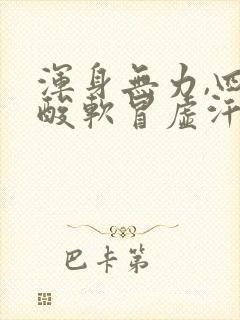 渾身無力,四
酸軟冒虛汗
巴卡第